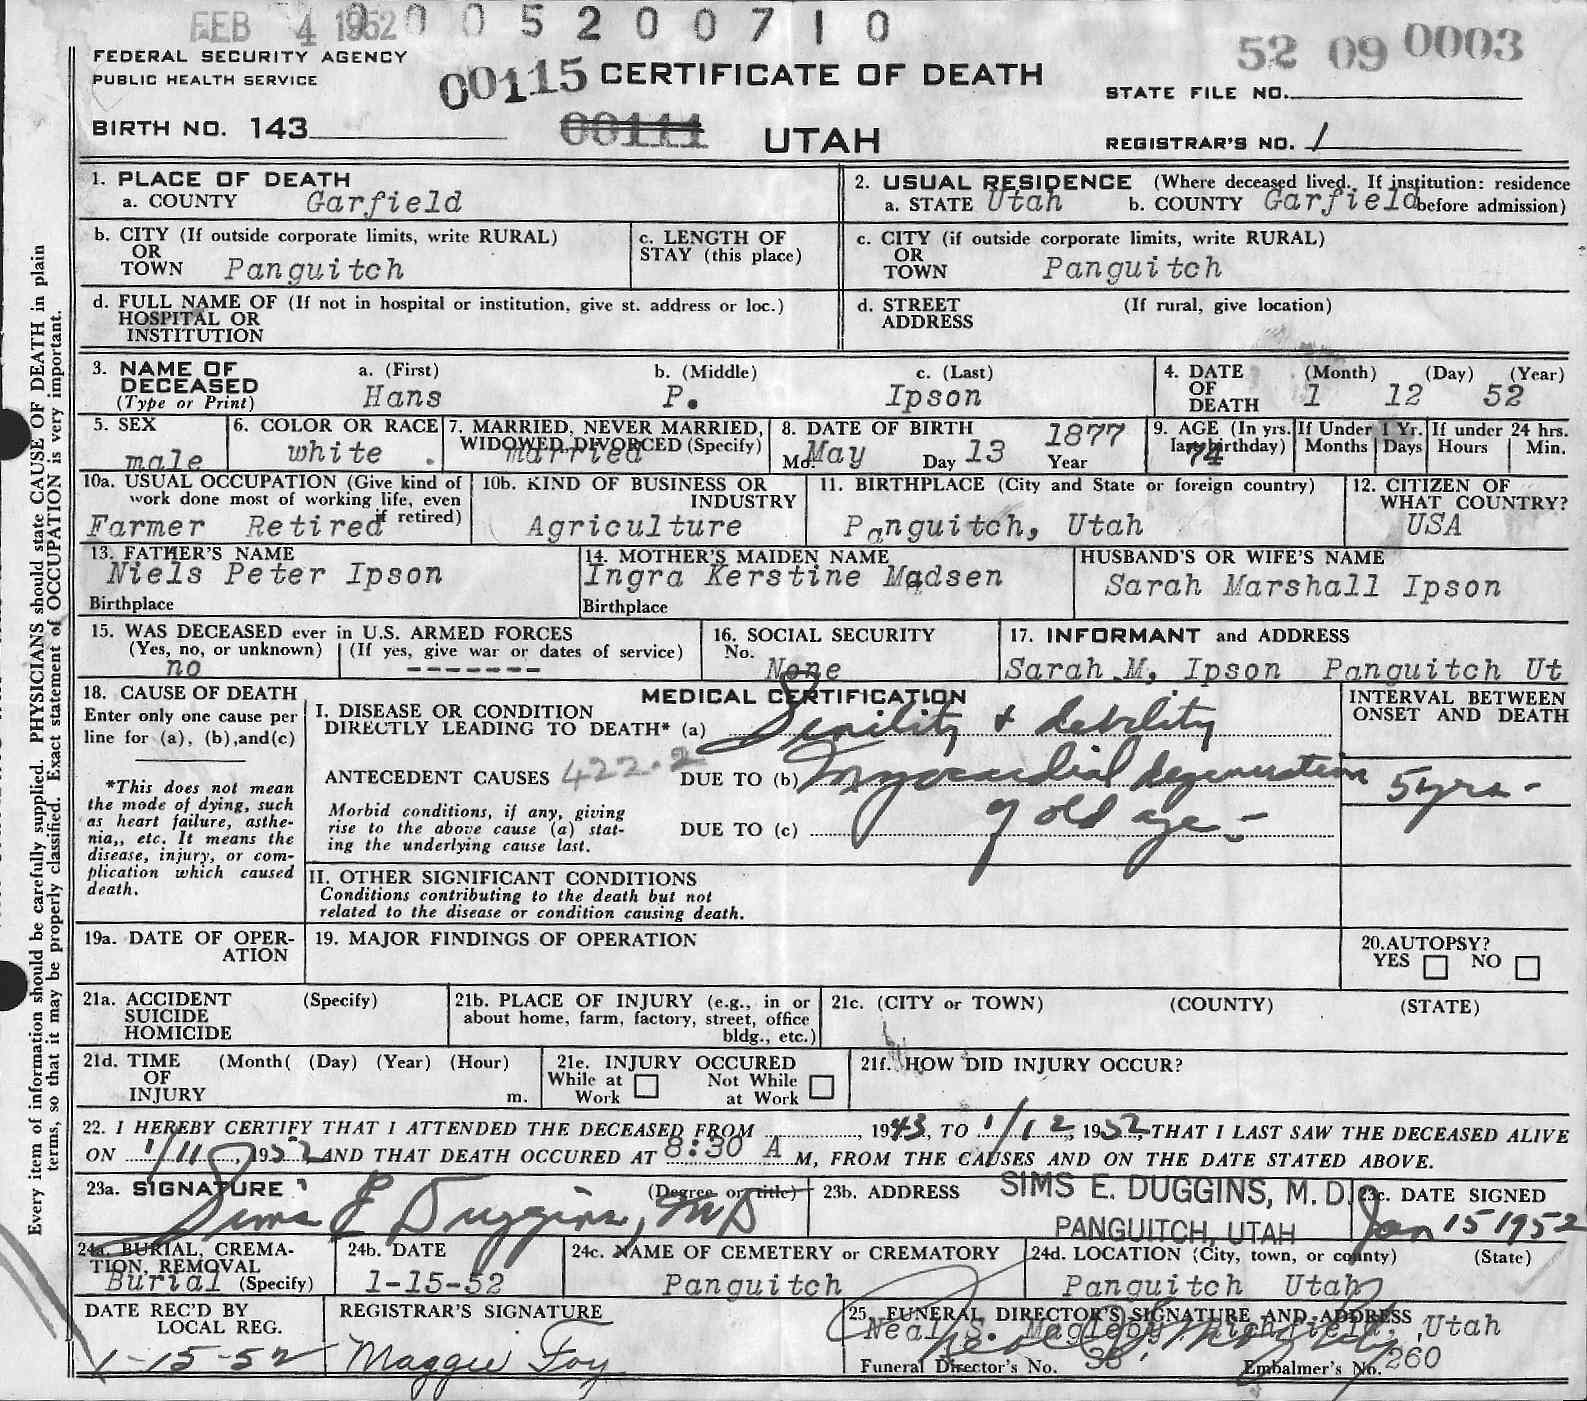 FEB 4 1952 0 0 5 2 0 0 7 1 0
52 09 0003
FEDERAL SECURITY AGENCY
PUBLIC HEALTH SERVICE
00115 CERTIFICATE OF DEATH
STATE FILE NO.
BIRTH NO. 143
00111
UTAH
REGISTRAR'S NO. 1
Every item of information should be carefully supplied. PHYSICIANS should state CAUSE OF DEATH in plain
terms, so that it may be properly classified. Exact statement of OCCUPATION is very important.
1. PLACE OF DEATH
a. COUNTY Garfield
2. USUAL RESIDENCE (Where deceased lived. If institution: residence
a. STATE Utah b. COUNTY Garfield before admission)
b. CITY (If outside corporate limits, write RURAL)
OR
TOWN Panguitch
c. LENGTH OF
STAY (this place)
c. CITY (if outside corporate limits, write RURAL)
OR
TOWN Panguitch
d. FULL NAME OF (If not in hospital or institution, give st. address or loc.)
HOSPITAL OR
INSTITUTION
d. STREET (If rural, give location)
ADDRESS
3. NAME OF
DECEASED
(Type or Print)
a. (First) b. (Middle) c. (Last)
Hans P. Ipson
4. DATE (Month) (Day) (Year)
OF
DEATH 1 12 52
5. SEX
male
6. COLOR OR RACE
white .
7. MARRIED, NEVER MARRIED,
WIDOWED, DIVORCED (Specify)
married
8. DATE OF BIRTH 1877
Mo. May Day 13 Year
9. AGE (In yrs.
last birthday)
74
If Under 1 Yr.
Months Days
If under 24 hrs.
Hours Min.
10a. USUAL OCCUPATION (Give kind of
work done most of working life, even
if retired)
Farmer Retired
10b. KIND OF BUSINESS OR
INDUSTRY
Agriculture
11. BIRTHPLACE (City and State or foreign country)
Panguitch, Utah
12. CITIZEN OF
WHAT COUNTRY?
USA
13. FATHER'S NAME
Niels Peter Ipson
Birthplace
14. MOTHER'S MAIDEN NAME
Ingra Kerstine Madsen
Birthplace
HUSBAND'S OR WIFE'S NAME
Sarah Marshall Ipson
15. WAS DECEASED ever in U.S. ARMED FORCES
(Yes, no, or unknown) (If yes, give war or dates of service)
no -------
16. SOCIAL SECURITY
No. None
17. INFORMANT and ADDRESS
Sarah M. Ipson Panguitch Ut
18. CAUSE OF DEATH
Enter only one cause per
line for (a), (b),and(c)
*This does not mean
the mode of dying, such
as heart failure, asthe-
nia,, etc. It means the
disease, injury, or com-
plication which caused
death.
MEDICAL CERTIFICATION
I. DISEASE OR CONDITION
DIRECTLY LEADING TO DEATH* (a) Senility & debility
ANTECEDENT CAUSES 422.2 DUE TO (b) Myocardial degeneration
Morbid conditions, if any, giving
rise to the above cause (a) stat-
ing the underlying cause last.
DUE TO (c) of old age -
INTERVAL BETWEEN
ONSET AND DEATH
5 yrs -
II. OTHER SIGNIFICANT CONDITIONS
Conditions contributing to the death but not
related to the disease or condition causing death.
19a. DATE OF OPER-
ATION
19. MAJOR FINDINGS OF OPERATION
20.AUTOPSY?
YES NO
21a. ACCIDENT (Specify)
SUICIDE
HOMICIDE
21b. PLACE OF INJURY (e.g., in or
about home, farm, factory, street, office
bldg., etc.)
21c. (CITY or TOWN) (COUNTY) (STATE)
21d. TIME (Month( (Day) (Year) (Hour)
OF
INJURY m.
21e. INJURY OCCURED
While at Work Not While at Work
21f. HOW DID INJURY OCCUR?
22. I HEREBY CERTIFY THAT I ATTENDED THE DECEASED FROM , 1943, TO 1/12, 1952, THAT I LAST SAW THE DECEASED ALIVE
ON 1/11, 1952 AND THAT DEATH OCCURED AT 8:30 A M, FROM THE CAUSES AND ON THE DATE STATED ABOVE.
23a. SIGNATURE (Degree or title)
Sims E Duggins, MD
23b. ADDRESS SIMS E. DUGGINS, M.D.
PANGUITCH, UTAH
23c. DATE SIGNED
Jan 15 1952
24a. BURIAL, CREMA-
TION, REMOVAL
Burial (Specify)
24b. DATE
1-15-52
24c. NAME OF CEMETERY or CREMATORY
Panguitch
24d. LOCATION (City, town, or county) (State)
Panguitch Utah
DATE REC'D BY
LOCAL REG.
1-15-52
REGISTRAR'S SIGNATURE
Maggie Foy
25. FUNERAL DIRECTOR'S SIGNATURE AND ADDRESS
Neal S. Magleby Richfield, Utah
Funeral Director's No. 35 Embalmer's No. 260